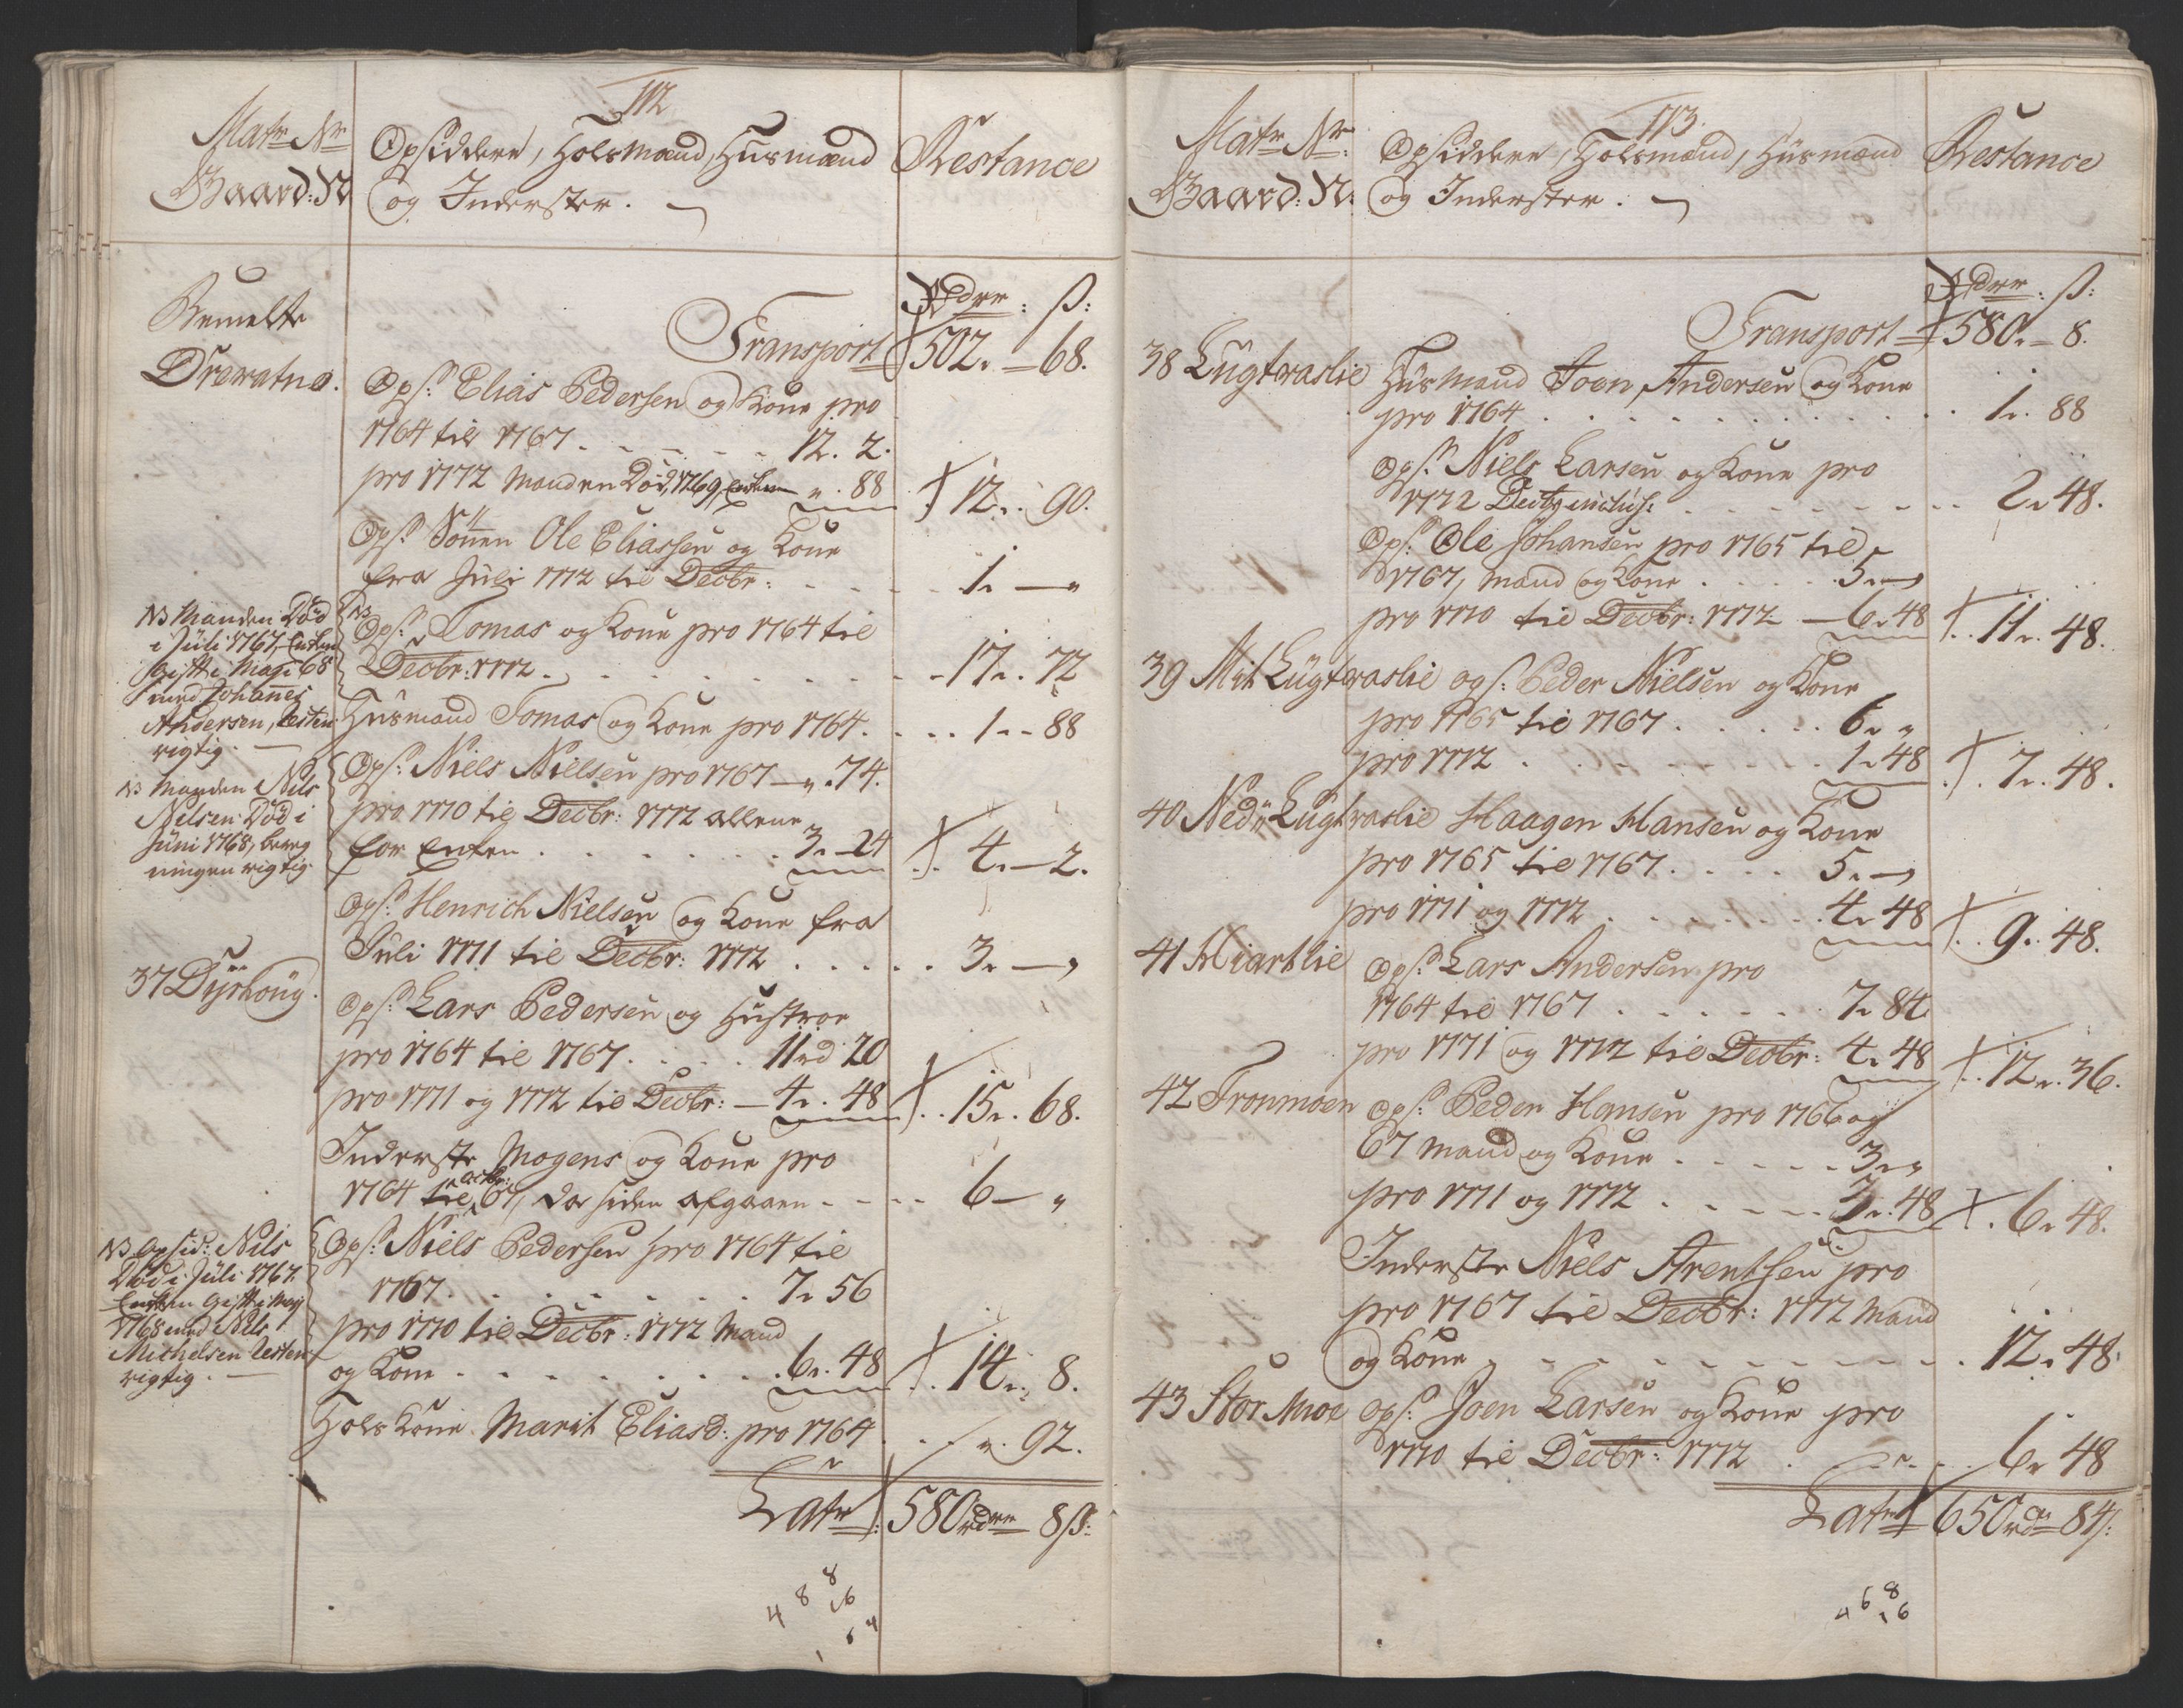 112
Matr Nr
Gaard: N
Opsiddere, Holsmænd, Husmænd
og Inderster.
Restance
Rdlr: ß:
Transport 502. 68.
Bemelte
Drewatne.
Ops: Elias Pedersen og Kone pro
1764 til 1767 12. 2.
pro 1772 Manden Död 1769, Enken „. 88 12. 90.
Ops: Sönnen Ole Eliassen og Kone
fra Juli 1772 til Decbr: 1. „
NB Manden Död
i Juli 1767, Enken
gift i Maji 68
med Johannes
Andersen, Resten
rigtig.
NB
Ops: Tomas og Kone pro 1764 til
Decbr: 1772 17. 72
Husmand Tomas og Kone pro 1764. 1. 88
NB Manden Nils
Nilsen Död i
Juni 1768, bereg
ningen rigtig
Ops: Niels Nielsen pro 1767 „. 74.
pro 1770 til Decbr: 1772 allene
for Enken 3. 24 4. 2.
Ops: Henrich Nielsen og Kone fra
Juli 1771 til Decbr: 1772 3. „
37 Dyrhoug.
Ops: Lars Pedersen og Hustroe
pro 1764 til 1767. 11rd 20
pro 1771 og 1772 til Decbr: 4. 48 15. 68.
Inderste Mogens og Kone pro
1764 til Octbr: 67, da siden afgaaen 6 „
NB Opsid: Nils
Död i Juli 1767.
Enken gift i Maji
1768 med Nils
Michelsen Resten
rigtig.
Ops: Niels Pedersen pro 1764 til
1767. 7. 56
pro 1770 til Decbr: 1772 Mand
og Kone 6. 48 14. 8.
Hols Kone Marit Eliasd: pro 1764 „. 92.
Latr: 580rdlr 8ß:
8
4 8 6
6 4
113.
Matr Nr:
Gaard: N:
Opsiddere, Holsmænd, Husmænd
og Inderster.
Restance
Rdlr: ß:
Transport 580. 8.
38 Lugtvaslie Husmand Joen Andersen og Kone
pro 1764 1. 88
Ops: Niels Larsen og Kone pro
1772 Decbr inclus: 2. 48.
Ops: Ole Johansen pro 1765 til
1767, Mand og Kone 5. „
pro 1770 til Decbr: 1772 6. 48 11. 48.
39 Mit Lugtvaslie Ops: Peder Nielsen og Kone
pro 1765 til 1767. 6. „
pro 1772 1. 48 7. 48.
40 Ned: Lugtvaslie Haagen Hansen og Kone
pro 1765 til 1767. 5. „
pro 1771 og 1772 4. 48 9. 48.
41 Hiartlie Ops: Lars Andersen pro
1764 til 1767 7. 84.
pro 1771 og 1772 til Decbr: 4. 48 12. 36.
42 Tronmoen Ops: Peder Hansen pro 1766 og
67 Mand og Kone 3. „
pro 1771 og 1772 3. 48 6. 48.
Inderste Niels Arentsen pro
pro 1767 til Decbr: 1772 Mand
og Kone 12. 48.
43 Stor Moe Ops: Joen Larsen og Kone pro
1770 til Decbr: 1772 6. 48
Latr 650rdr 84ß:
4 6 8
6